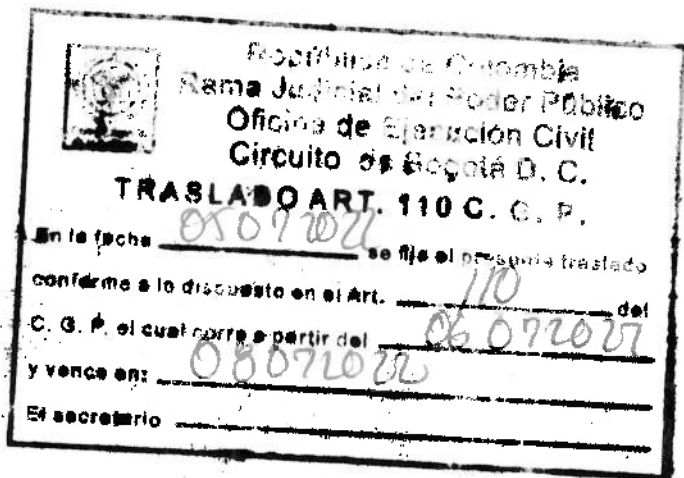 República de Colombia
Rama Judicial del Poder Público
Oficina de Ejecución Civil
Circuito de Bogotá D. C.
TRASLADO ART. 110 C. G. P.
En la fecha 05072022 se fija el presente traslado
conforme a lo dispuesto en el Art. 110 del
C. G. P. el cual corre a partir del 06072022
y vence en: 08072022
El secretario